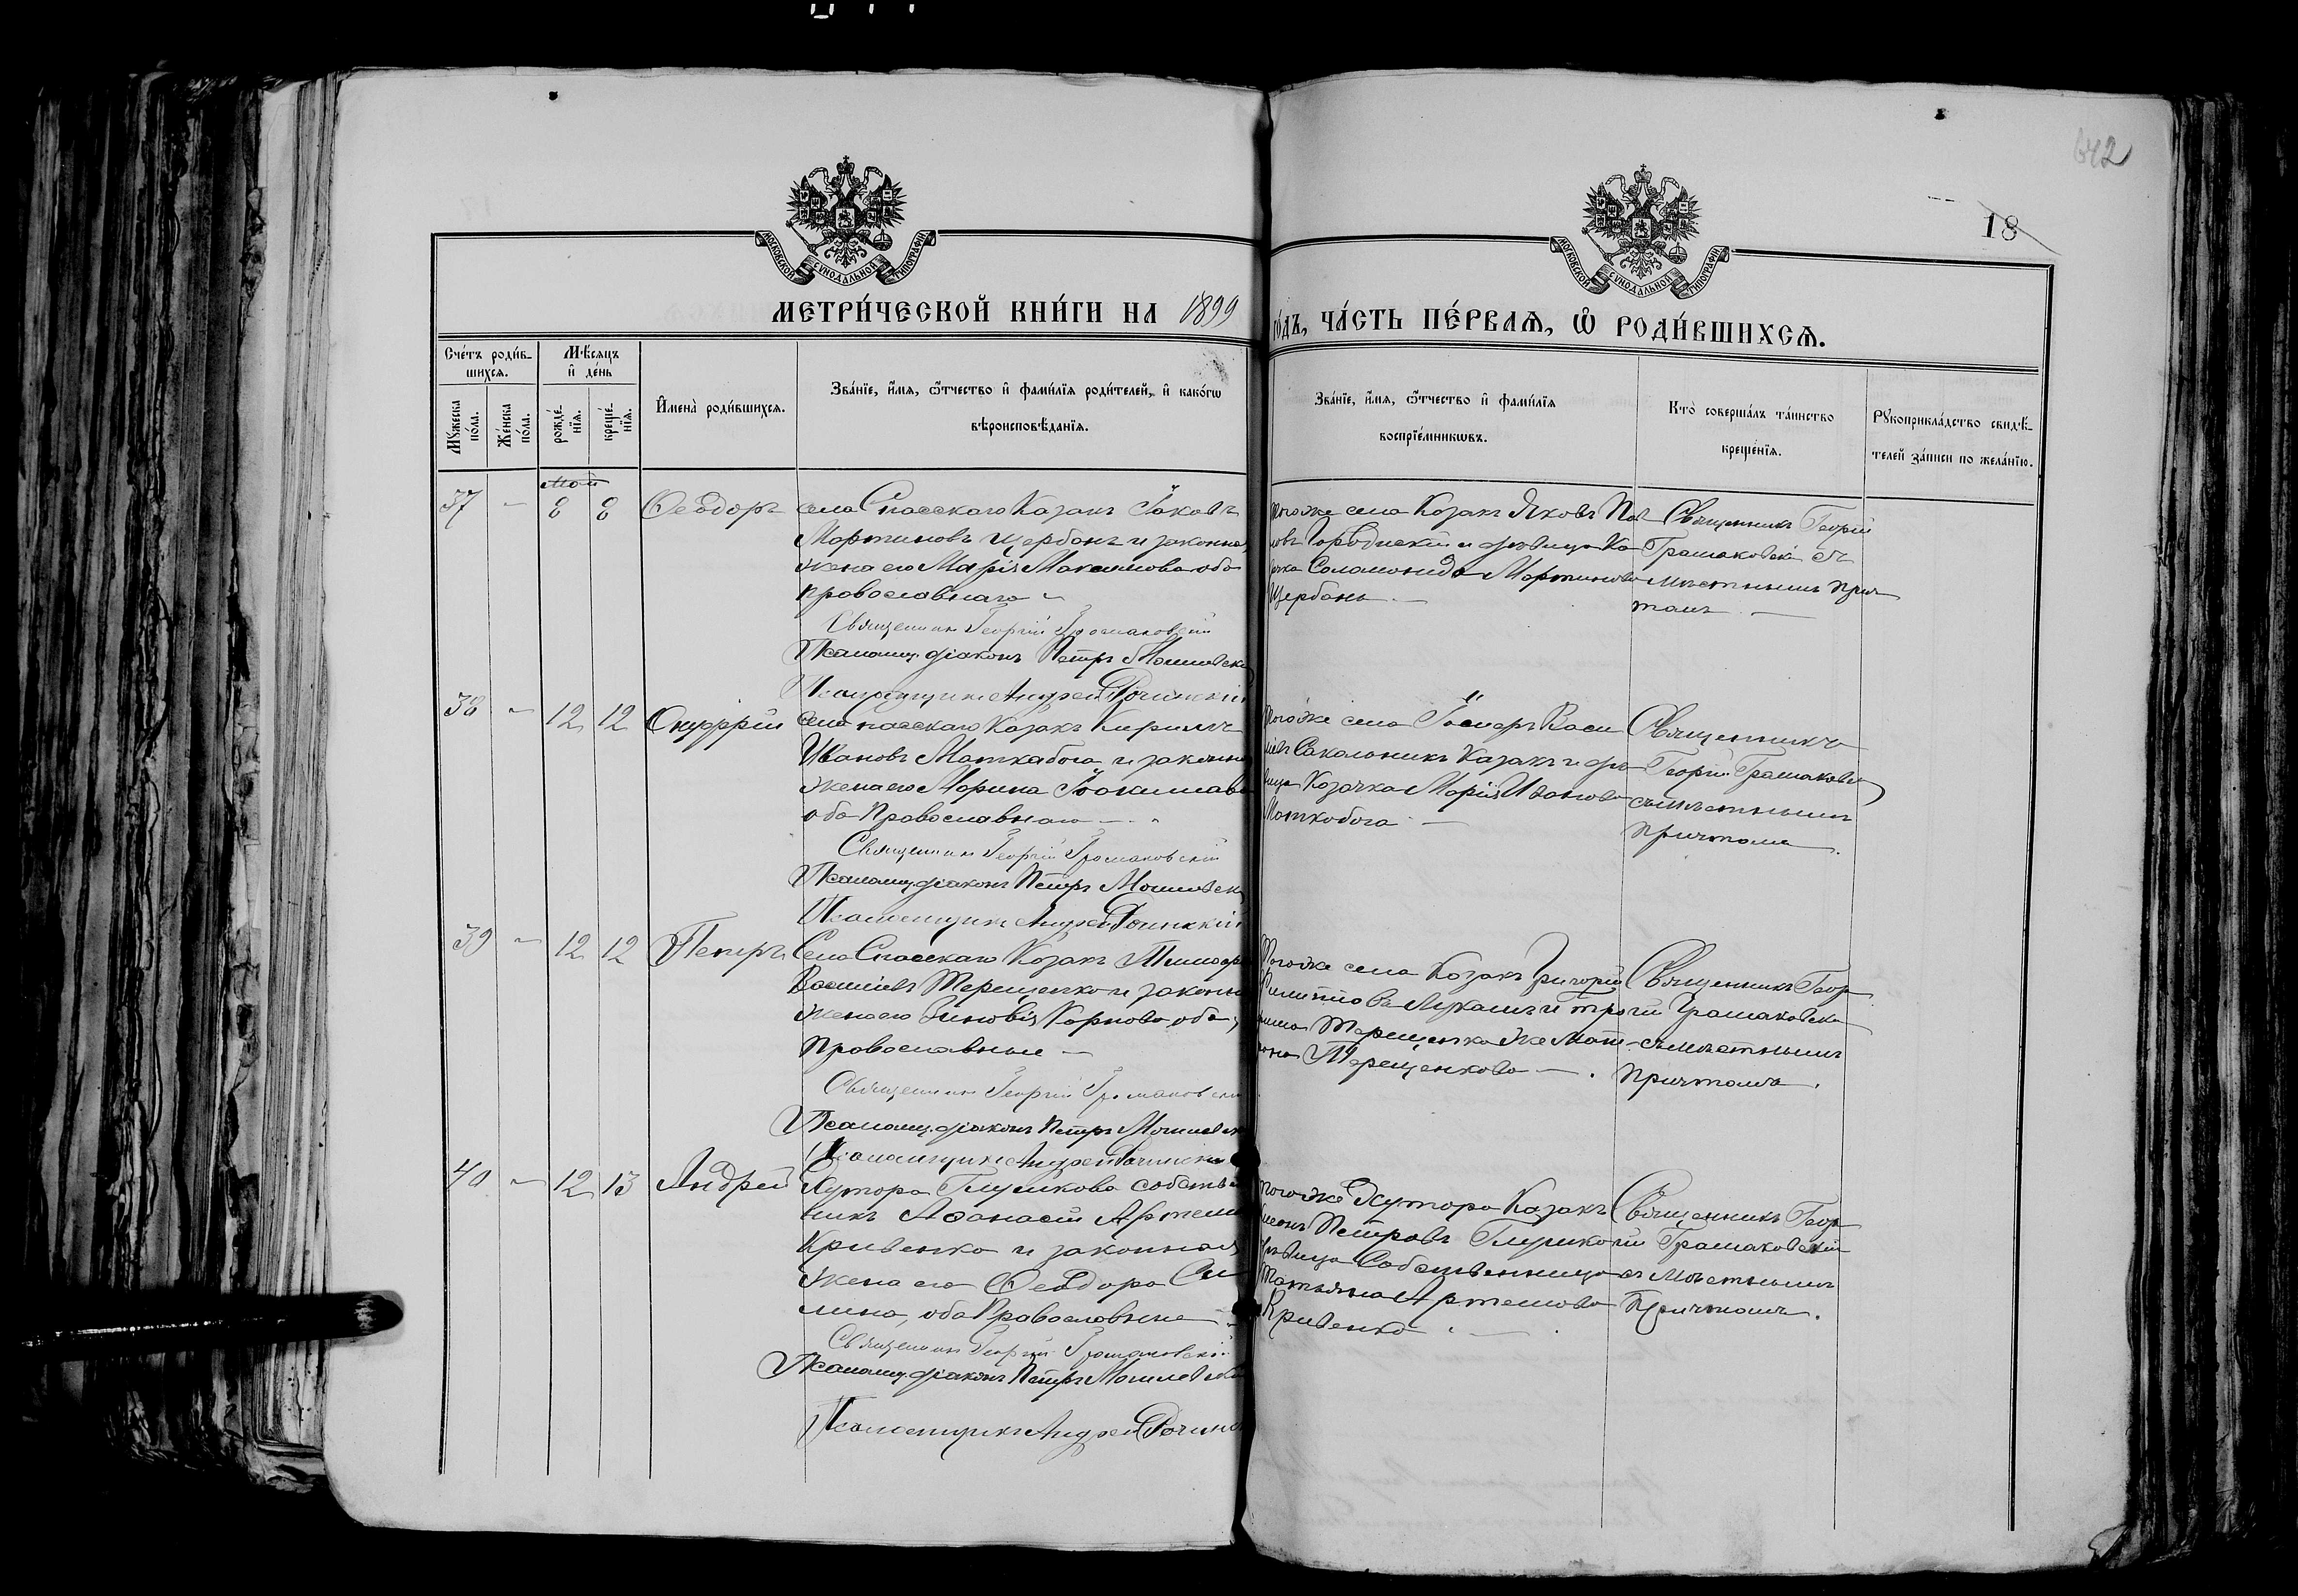 642
18
МОСКОВСКОЙ СУНОДАЛЬНОЙ ТИПОГРАФІИ
МОСКОВСКОЙ СУНОДАЛЬНОЙ ТИПОГРАФІИ
МЕТРИ́ЧЕСКОЙ КНИ́ГИ НА 1899
ГО́ДЪ, ЧА́СТЬ ПЕ́РВАѦ, Ѡ РОДИ́ВШИХСѦ.
Сче́тъ роди́в-
шихсѧ.
Мѣ́сѧцъ
и҆ де́нь
Мꙋ́жеска
по́ла.
Же́нска
по́ла.
рожде́-
нїѧ.
креще́-
нїѧ.
И҆мена̀ роди́вшихсѧ.
Зва́нїе, и҆́мѧ, ѻ҆́тчество и҆ фами́лїѧ роди́телей, и҆ како́гѡ
вѣроисповѣ́данїѧ.
Зва́нїе, и҆́мѧ, ѻ҆́тчество и҆ фами́лїѧ
воспрїе́мникѡвъ.
Кто̀ соверша́лъ та́инство
креще́нїѧ.
Рꙋкоприкла́дство свидѣ́-
телей за́писи по жела́нїю.
Май
37 - 8 8 Ѳеодоръ
села Спасскаго Казакъ Іаковъ
Мартиновъ Щербань и законна
жена его Марія Максимова оба
православнаго
Священник Георгій Громаковскій
Псаломщ. діаконъ Петръ
Псаломщикъ Андрей
того же села Козакъ Яковъ Пав
ловъ Городнскій и дѣвица Ка
зачка Саломонида Мартинова
Щербань
Священникъ Георгій
Грамаковскій съ
мѣстнымъ прич
томъ
38 - 12 12 Онуфрій
села Спасскаго Казакъ Кириллъ
Ивановъ Маткабога и законна
жена его Марина Іоакимова
оба Православнаго
Священник Георгій Громаковскій
Псаломщ. діаконъ Петръ
Псаломщикъ Андрей
того же села Васи
Сакальникъ Казакъ и дѣ
вица Козачка Марія Иванова
Маткобога
Священникъ
Георгій Грамаковскій
съ мѣстнымъ
причтомъ.
39 - 12 12 Петръ
Села Спасскаго Козакъ Тимофей
Василіевъ Терещенко и законна
жена его Зиновія Карпова оба
православные
Священник Георгій Громаковскій
Псаломщ. діаконъ Петръ
Псаломщикъ Андрей
того же села Козакъ Григорій
Филиппова Лукаш и
Терещенка жена
Терещенкова
Священникъ Геор
гій Грамаковскій
съ мѣстнымъ
причтомъ.
40 - 12 13 Андрей
Хутора Глушкова собствен
никъ Афанасій Артемів
Кривенко и законная
жена его Ѳеодора
оба Православные
Священник Георгій Громаковскій
Псаломщ. діаконъ Петръ
Псаломщикъ Андрей
того же Хутора Казакъ
Петровъ Глушко и
дѣвица Собственница
Татьяна Артемова
Кривенко
Священникъ Геор
гій Грамаковскій
съ мѣстнымъ
Причтомъ.